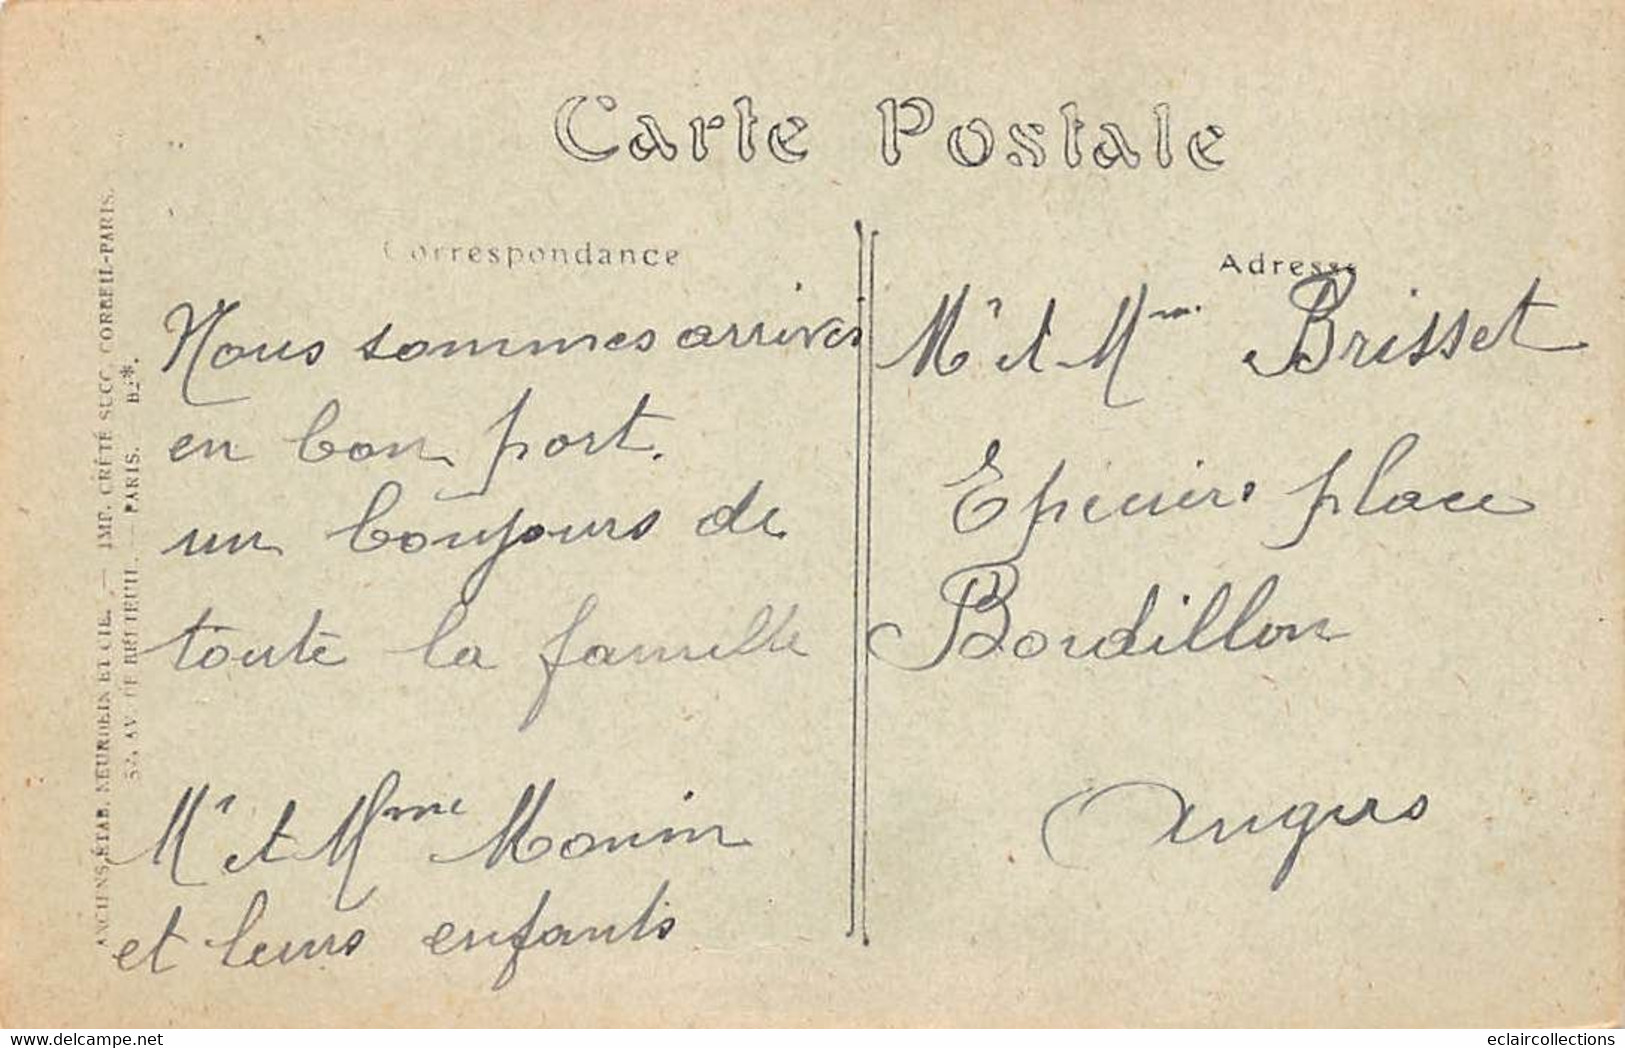 Carte Postale
Correspondance
Adresse
Nous sommes arrivés
en bon port.
un bonjours de
toute la famille
Mr et Mme Monin
et leurs enfants
Mr et Mme Brisset
Epiciers place
Bordillon
Angers
ANCIENS ETAB. NEURDEIN ET CIE. — IMP. CRÉTÉ SUCC. CORBEIL-PARIS.
52, AV. DE BRETEUIL. — PARIS.
delcampe.net
eclaircollections